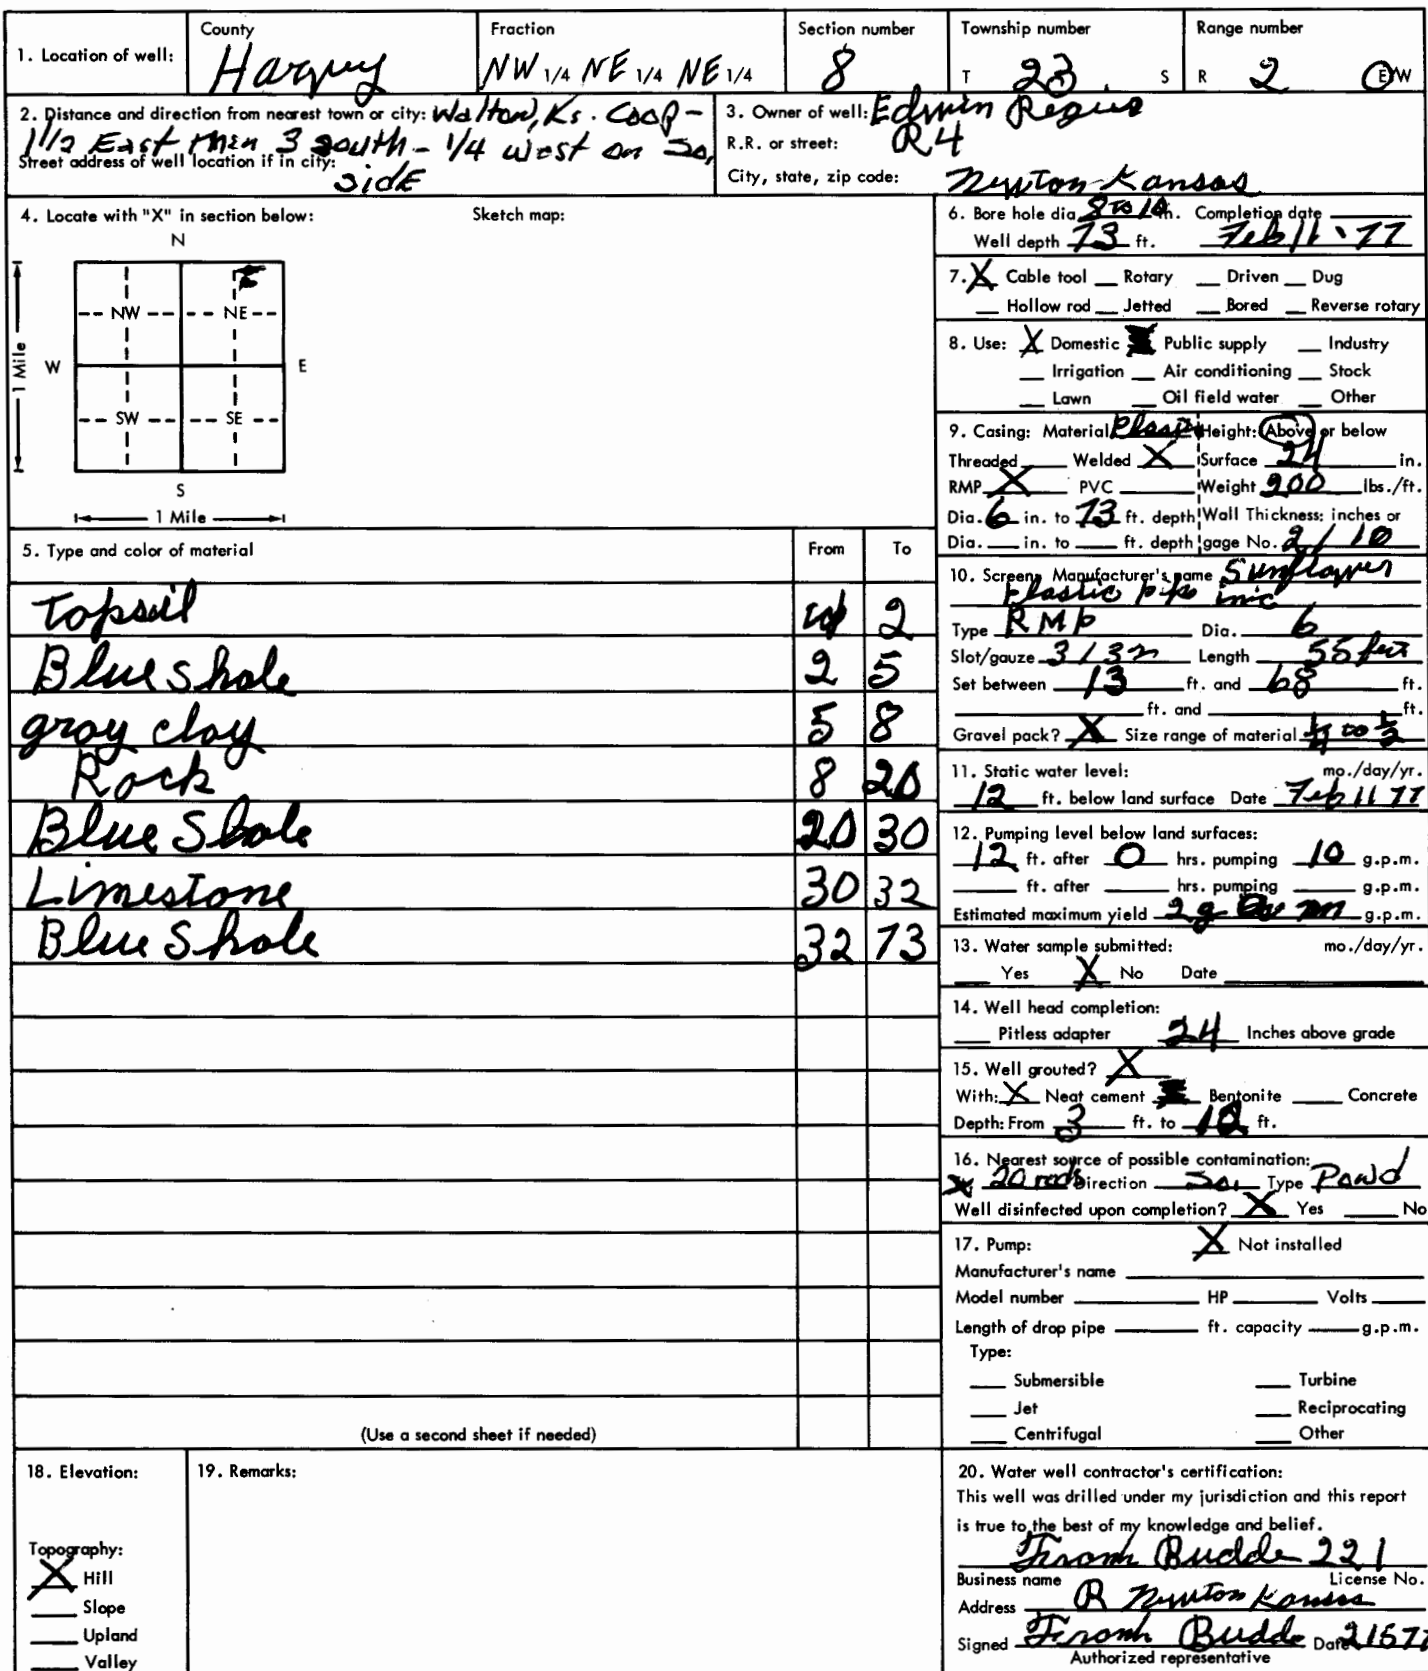 1. Location of well: County Harvey Fraction NW 1/4 NE 1/4 NE 1/4 Section number 8 Township number T 23 S Range number R 2 E/W
2. Distance and direction from nearest town or city: Walton, Ks. Coop -
1 1/2 East then 3 south - 1/4 west on So,
Street address of well location if in city: side
3. Owner of well: Edwin Regier
R.R. or street: R4
City, state, zip code: Newton Kansas
4. Locate with "X" in section below: Sketch map:
N
NW NE
W E
1 Mile
SW SE
S
1 Mile
5. Type and color of material From To
Topsoil 2
Blue Shale 2 5
gray clay 5 8
Rock 8 20
Blue Shale 20 30
Limestone 30 32
Blue Shale 32 73
(Use a second sheet if needed)
6. Bore hole dia 8 to 10 in. Completion date
Well depth 73 ft. Feb 11 - 77
7. X Cable tool Rotary Driven Dug
Hollow rod Jetted Bored Reverse rotary
8. Use: X Domestic Public supply Industry
Irrigation Air conditioning Stock
Lawn Oil field water Other
9. Casing: Material Plastic Height: Above or below
Threaded Welded X Surface 24 in.
RMP X PVC Weight 200 lbs./ft.
Dia. 6 in. to 73 ft. depth Wall Thickness: inches or
Dia. in. to ft. depth gage No. 2/10
10. Screen: Manufacturer's name Sunflower
Plastic pipe inc
Type RMP Dia. 6
Slot/gauze 3/32 Length 55 feet
Set between 13 ft. and 68 ft.
ft. and ft.
Gravel pack? X Size range of material 1/4 to 1/2
11. Static water level: mo./day/yr.
12 ft. below land surface Date Feb 11 77
12. Pumping level below land surfaces:
12 ft. after 0 hrs. pumping 10 g.p.m.
ft. after hrs. pumping g.p.m.
Estimated maximum yield 2 g.p.m.
13. Water sample submitted: mo./day/yr.
Yes X No Date
14. Well head completion:
Pitless adapter 24 Inches above grade
15. Well grouted? X
With: X Neat cement Bentonite Concrete
Depth: From 3 ft. to ft.
16. Nearest source of possible contamination:
20 rods Direction So. Type Pond
Well disinfected upon completion? X Yes No
17. Pump: X Not installed
Manufacturer's name
Model number HP Volts
Length of drop pipe ft. capacity g.p.m.
Type:
Submersible Turbine
Jet Reciprocating
Centrifugal Other
18. Elevation:
Topography:
X Hill
Slope
Upland
Valley
19. Remarks:
20. Water well contractor's certification:
This well was drilled under my jurisdiction and this report
is true to the best of my knowledge and belief.
Budde 221
Business name License No.
Address R Newton Kansas
Signed Budde Date 21577
Authorized representative